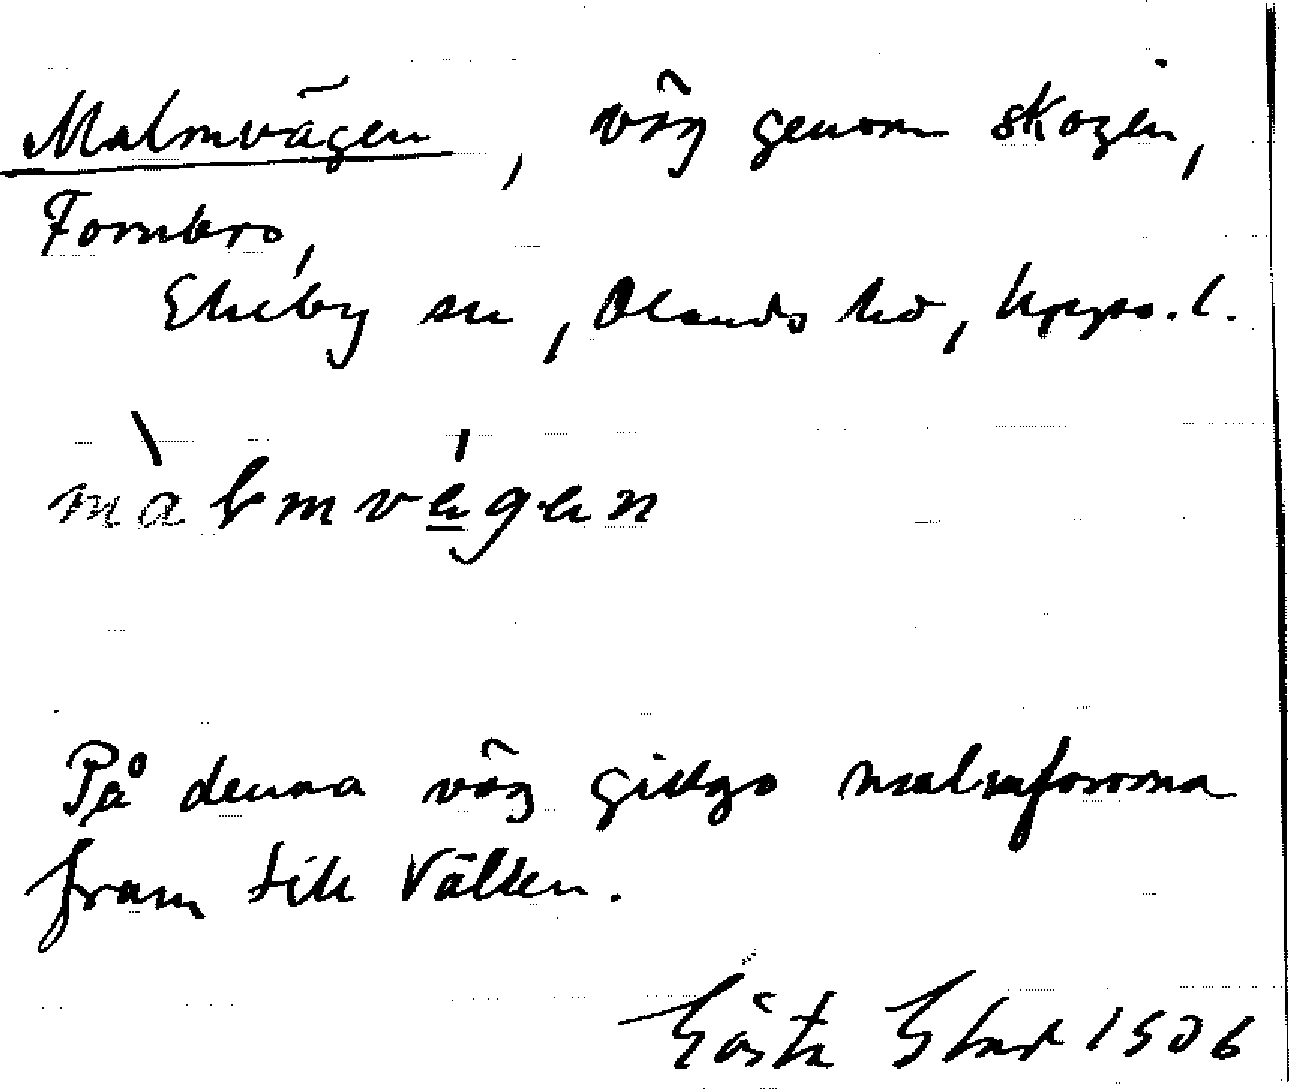 Malmvägen, väg genom skogen,
Fornbro,
Ekeby sn, Olands hd, Upps. l.
màlmvägen
På denna väg gingo malmfororna
fram till Vällen.
Gösta